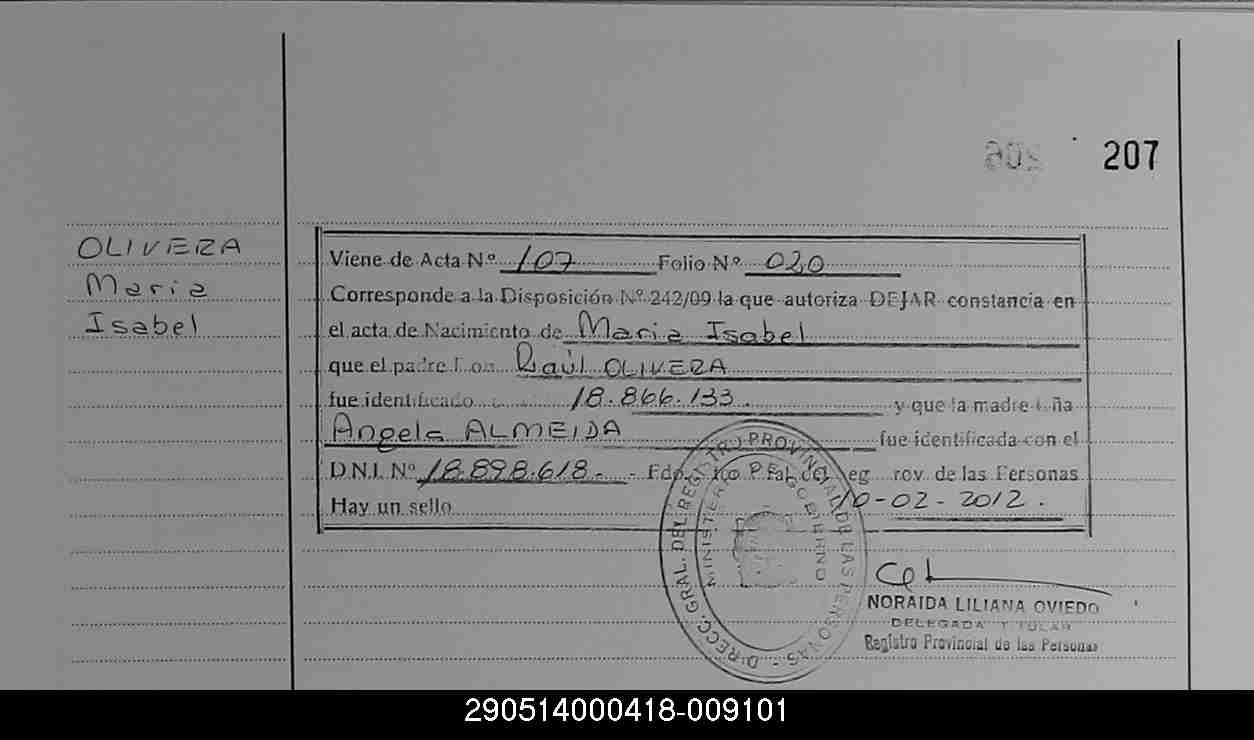 207
OLIVERA
Maria
Isabel
Viene de Acta Nº 107 Folio Nº 020
Corresponde a la Disposición Nº 242/09 la que autoriza DEJAR constancia en
el acta de Nacimiento de Maria Isabel
que el padre Don Raúl OLIVERA
fue identificado 18.866.133 y que la madre Dña
Angela ALMEIDA fue identificada con el
D.N.I. Nº 18.898.618.- Fdo. P Pal del eg rov de las Personas
Hay un sello 10-02-2012.
DIRECC. GRAL. DEL REGISTRO PROVINCIAL DE LAS PERSONAS
MINISTER GOBIERNO
NORAIDA LILIANA OVIEDO
DELEGADA TITULAR
Registro Provincial de las Personas
290514000418-009101